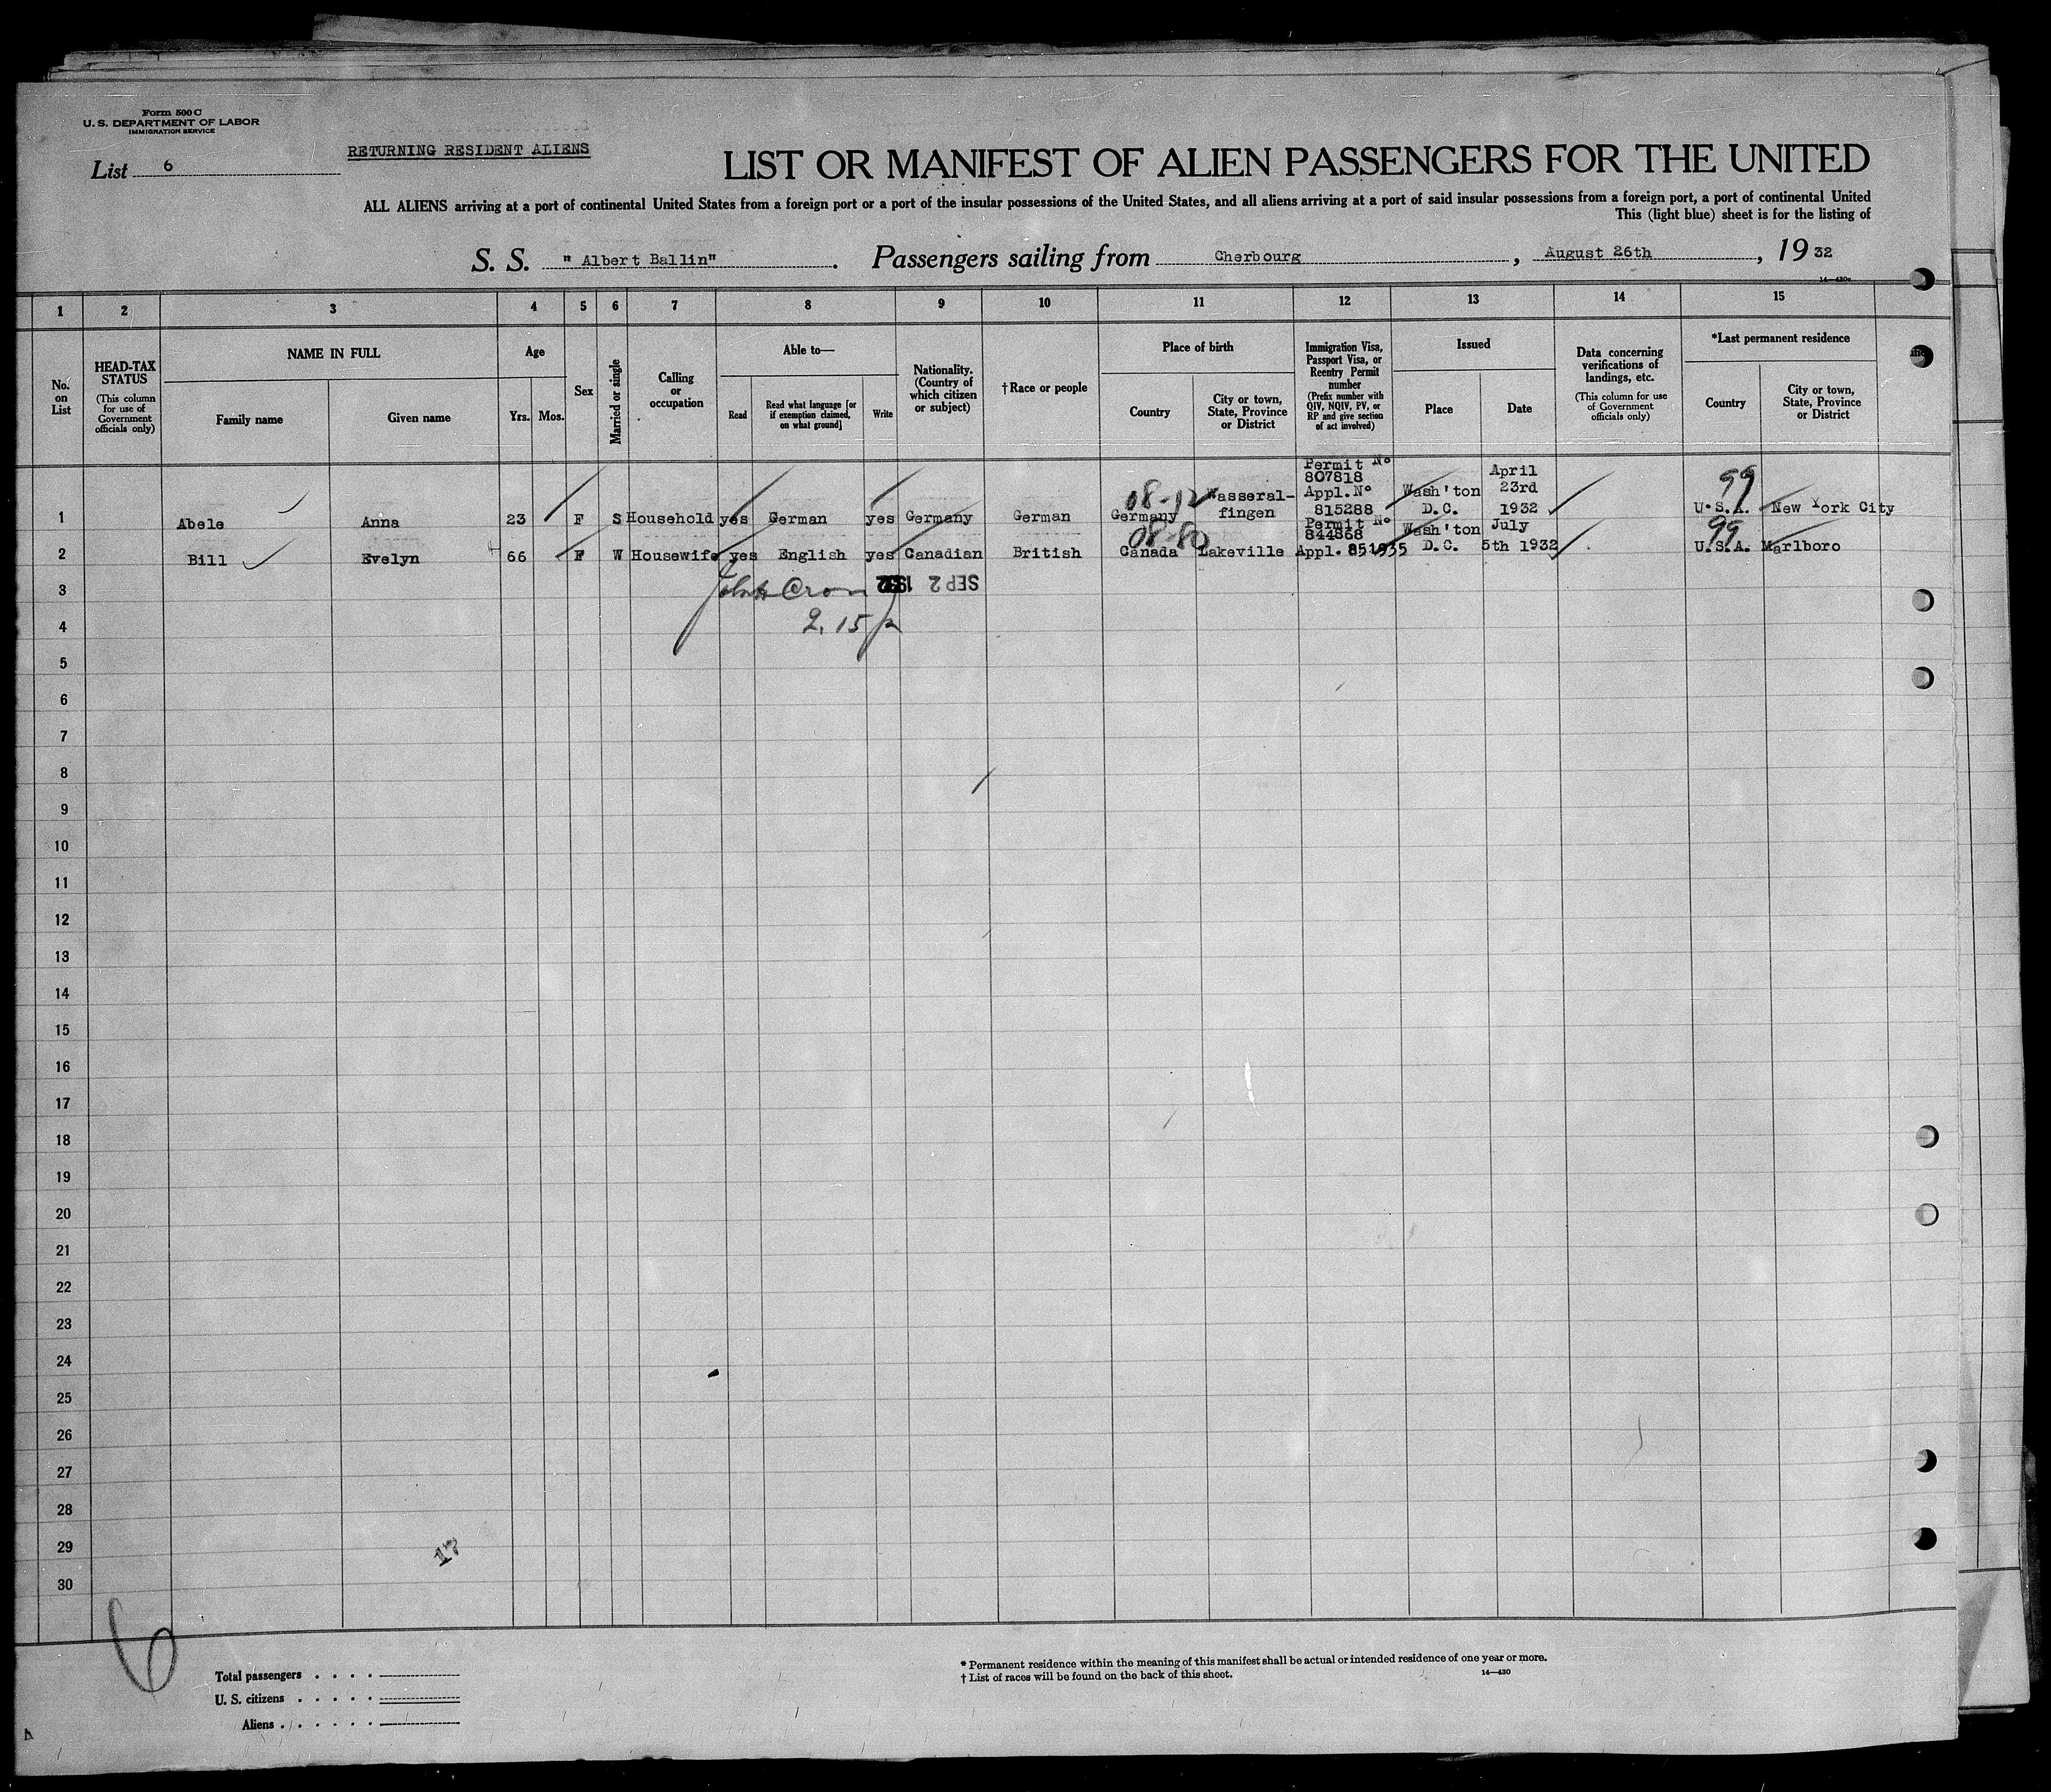 Form 500 C
U. S. DEPARTMENT OF LABOR
IMMIGRATION SERVICE
List 6
RETURNING RESIDENT ALIENS
LIST OR MANIFEST OF ALIEN PASSENGERS FOR THE UNITED
ALL ALIENS arriving at a port of continental United States from a foreign port or a port of the insular possessions of the United States, and all aliens arriving at a port of said insular possessions from a foreign port, a port of continental United
This (light blue) sheet is for the listing of
S. S. " Albert Ballin". Passengers sailing from Cherbourg, August 26th, 19 32
14—430a
1 2 3 4 5 6 7 8 9 10 11 12 13 14 15
No. on List
HEAD-TAX STATUS
(This column for use of Government officials only)
NAME IN FULL
Family name
Given name
Age
Yrs.
Mos.
Sex
Married or single
Calling or occupation
Able to—
Read
Read what language [or if exemption claimed, on what ground]
Write
Nationality. (Country of which citizen or subject)
†Race or people
Place of birth
Country
City or town, State, Province or District
Immigration Visa, Passport Visa, or Reentry Permit number
(Prefix number with QIV, NQIV, PV, or RP and give section of act involved)
Issued
Place
Date
Data concerning verifications of landings, etc.
(This column for use of Government officials only)
*Last permanent residence
Country
City or town, State, Province or District
1 Abele Anna 23 F S Household yes German yes Germany German 08-12 Germany Wasseral-fingen Permit No 807818 Appl. No 815288 Wash'ton D.C. April 23rd 1932 99 U.S.A. New York City
2 Bill Evelyn 66 F W Housewife yes English yes Canadian British 08-80 Canada Lakeville Permit No 844868 Appl. 851935 Wash'ton D.C. July 5th 1932 99 U.S.A. Marlboro
3 SEP 2 1932
4 2.15 p
5
6
7
8
9
10
11
12
13
14
15
16
17
18
19
20
21
22
23
24
25
26
27
28
29
17
30
6
Total passengers
U. S. citizens
Aliens
* Permanent residence within the meaning of this manifest shall be actual or intended residence of one year or more.
† List of races will be found on the back of this sheet.
14—430